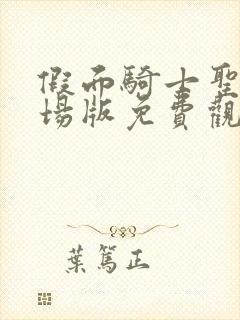 假而騎士聖
場版免費觀
葉篤正